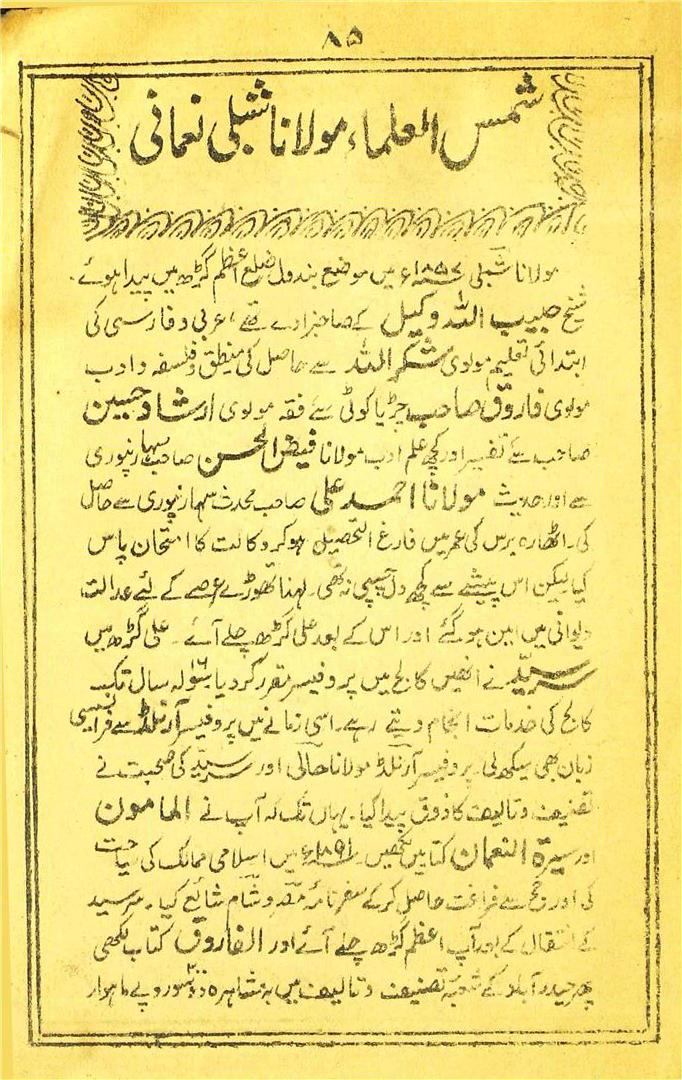 ۸۵
شمس العلماء مولانا شبلی نعمانی
مولانا شبلی ۱۸۵۷ء میں موضع بندول ضلع اعظم گڑھ میں پیدا ہوئے۔
شیخ حبیب اللہ وکیل کے صاحبزادے تھے، عربی و فارسی کی
ابتدائی تعلیم مولوی شکر اللہ سے حاصل کی منطق و فلسفہ و ادب
مولوی فاروق صاحب چڑیا کوٹی سے فقہ مولوی ارشاد حسین
صاحب سے تفسیر اور کچھ علم ادب مولانا فیض الحسن صاحب سہارنپوری
سے اور حدیث مولانا احمد علی صاحب محدث سہارنپوری سے حاصل
کی۔ اٹھارہ برس کی عمر میں فارغ التحصیل ہو کر وکالت کا امتحان پاس
کیا لیکن اس پیشے سے کچھ دلچسپی نہ تھی۔ لہذا تھوڑے عرصے کے لئے عدالت
دیوانی میں امین ہو گئے اور اس کے بعد علی گڑھ چلے آئے۔ علی گڑھ میں
سرسید نے انھیں کالج میں پروفیسر مقرر کر دیا۔ ۱۶ سولہ سال تک
کالج کی خدمات انجام دیتے رہے۔ اسی زمانے میں پروفیسر آرنلڈ سے فرانسیسی
زبان بھی سیکھ لی۔ پروفیسر آرنلڈ مولانا حالی اور سرسید کی صحبت نے
تصنیف و تالیف کا ذوق پیدا کیا۔ یہاں تک کہ آپ نے المامون
اور سیرۃ النعمان کتابیں لکھیں۔ میں اسلامی ممالک کی سیاحت
کی اور حج سے فراغت حاصل کر کے سفر نامہ و شام شائع کیا۔ سرسید
کے انتقال کے بعد آپ اعظم گڑھ چلے آئے اور الفاروق کتاب لکھی
پھر حیدرآباد کے شعبۂ تصنیف و تالیف میں بہ مشاہرہ روپے ماہوار